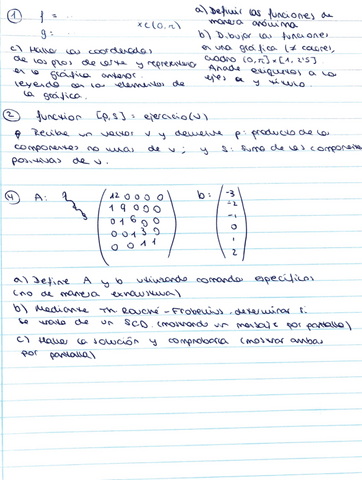 ① f = ..
g: ..
x ∈ (0, π)
a) Definir las funciones de
manera anónima
b) Dibujar las funciones
en una gráfica (x colores,
cuadro [0,π]x[1, 2'5].
Añade etiquetas a los
ejes x y título.
c) Hallar las coordenadas
de los ptos de corte y representarlos
en la gráfica anterior.
leyenda en los elementos de
la gráfica.
② function [p,s] = ejercicio(v)
Recibe un vector v y devuelve p: producto de las
componentes no nulas de v; y s: suma de las componentes
positivas de v.
④ A:
12 0 0 0 0
1 9 0 0 0
0 1 6 0 0
0 0 1 3 0
0 0 1 1
b:
-3
-2
-1
0
1
2
a) Define A y b utilizando comandos específicos
(no de manera exhaustiva)
b) Mediante Th Rouché-Frobenius, determinar si
se trata de un SCD. (mostrando un mensaje por pantalla)
c) Hallar la solución y comprobarla (mostrar ambas
por pantalla)